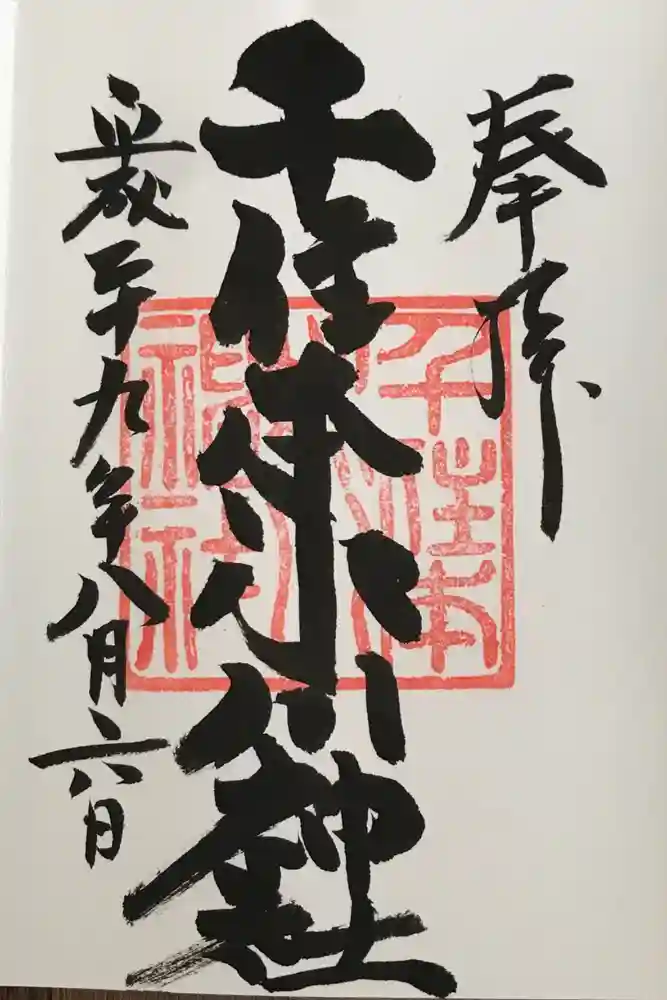 奉拝
千住本氷川神社
平成二十九年八月六日
千住本
氷川
神社